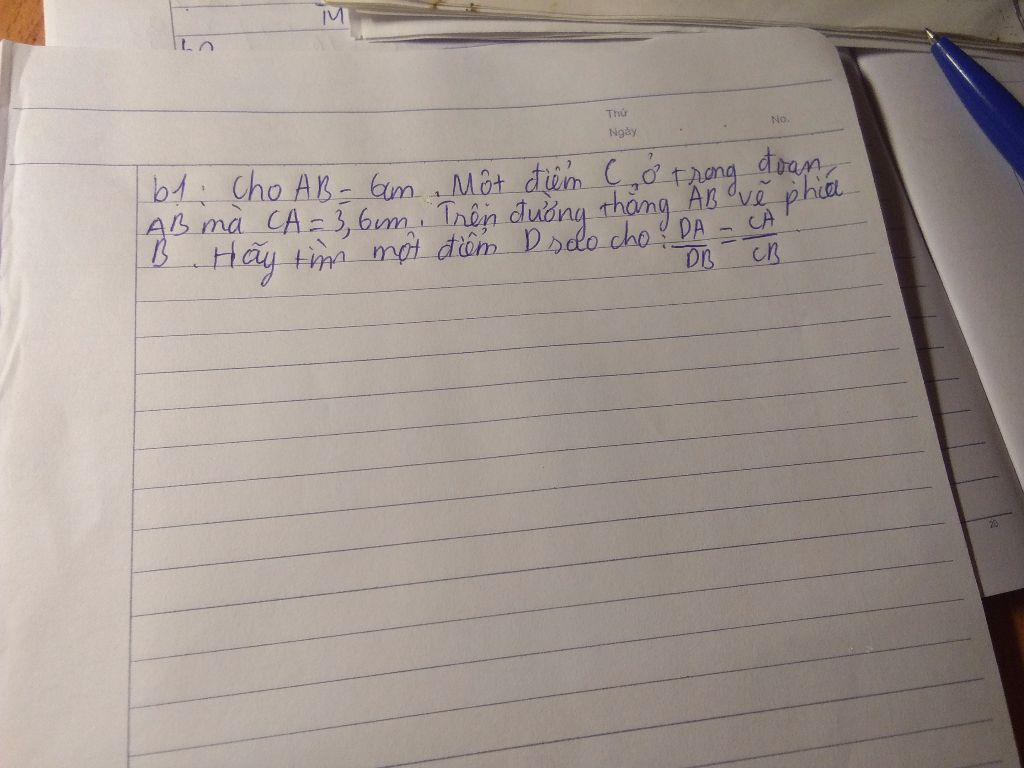 M
Thứ
Ngày
No.
b1: Cho AB = 6cm. Một điểm C ở trong đoạn
AB mà CA = 3,6cm. Trên đường thẳng AB về phía
B. Hãy tìm một điểm D sao cho: DA/DB = CA/CB
20